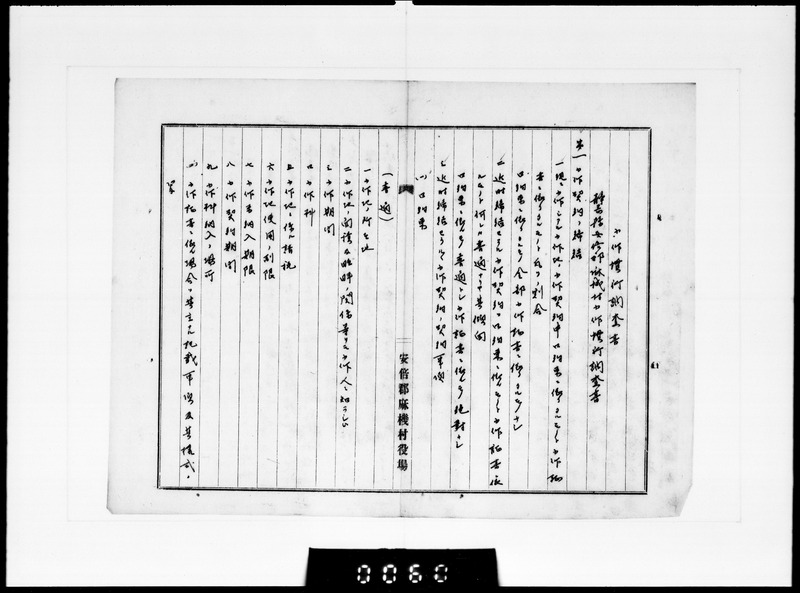 小作慣行調査書
静岡縣安倍郡麻機村小作慣行調査書
第一 小作契約ノ締結
一 現ニ小作シアル小作地ノ小作契約中口約束ニ依ルモノト小作証
書ニ依ルモノトノ割合
口約束ニ依ルモノ全部小作証書ニ依ルモノナシ
二 近時締結セラルル小作契約ハ口約束ニ依ルモノト小作証書ニ依
ルモノト何レカ普通ナリヤ其傾向
口約束ニ依ルヲ普通トシ小作証書ニ依ルモノ絶対ナシ
三 近時締結セラルル小作契約ノ契約事項
(一) 口約束
(普通)
一 小作地ノ所在地
二 小作地ノ
三 小作期間
四 小作料
五 小作地ニ係ル諸税
六 小作地使用ノ制限
七 小作料納入期限
八 小作契約期間
九 小作料納入ノ場所
(二) 小作証書ニ依ル場合ハ其主ナル記載事項及其様式
安倍郡麻機村役場
0060